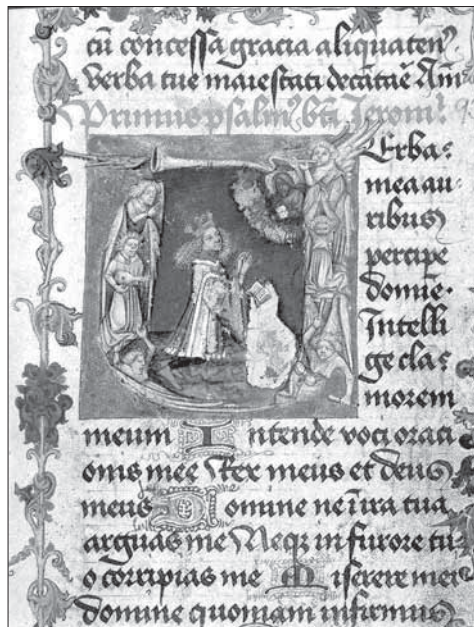 cū concessa gracia aliquaten⁹
verba tue maiestati decātaꝛe Am̄
Primus psalm⁹ bt̄i Jeronīi
Erba
mea au
ribus
percipe
domine
Intelli
ge cla
morem
meum Intende voci orati
onis mee Rex meus et deus
meus Domine ne in ira tua
arguas me Neqꝫ in furore tu
o corripias me Miserere mei
domine quoniam infirmus